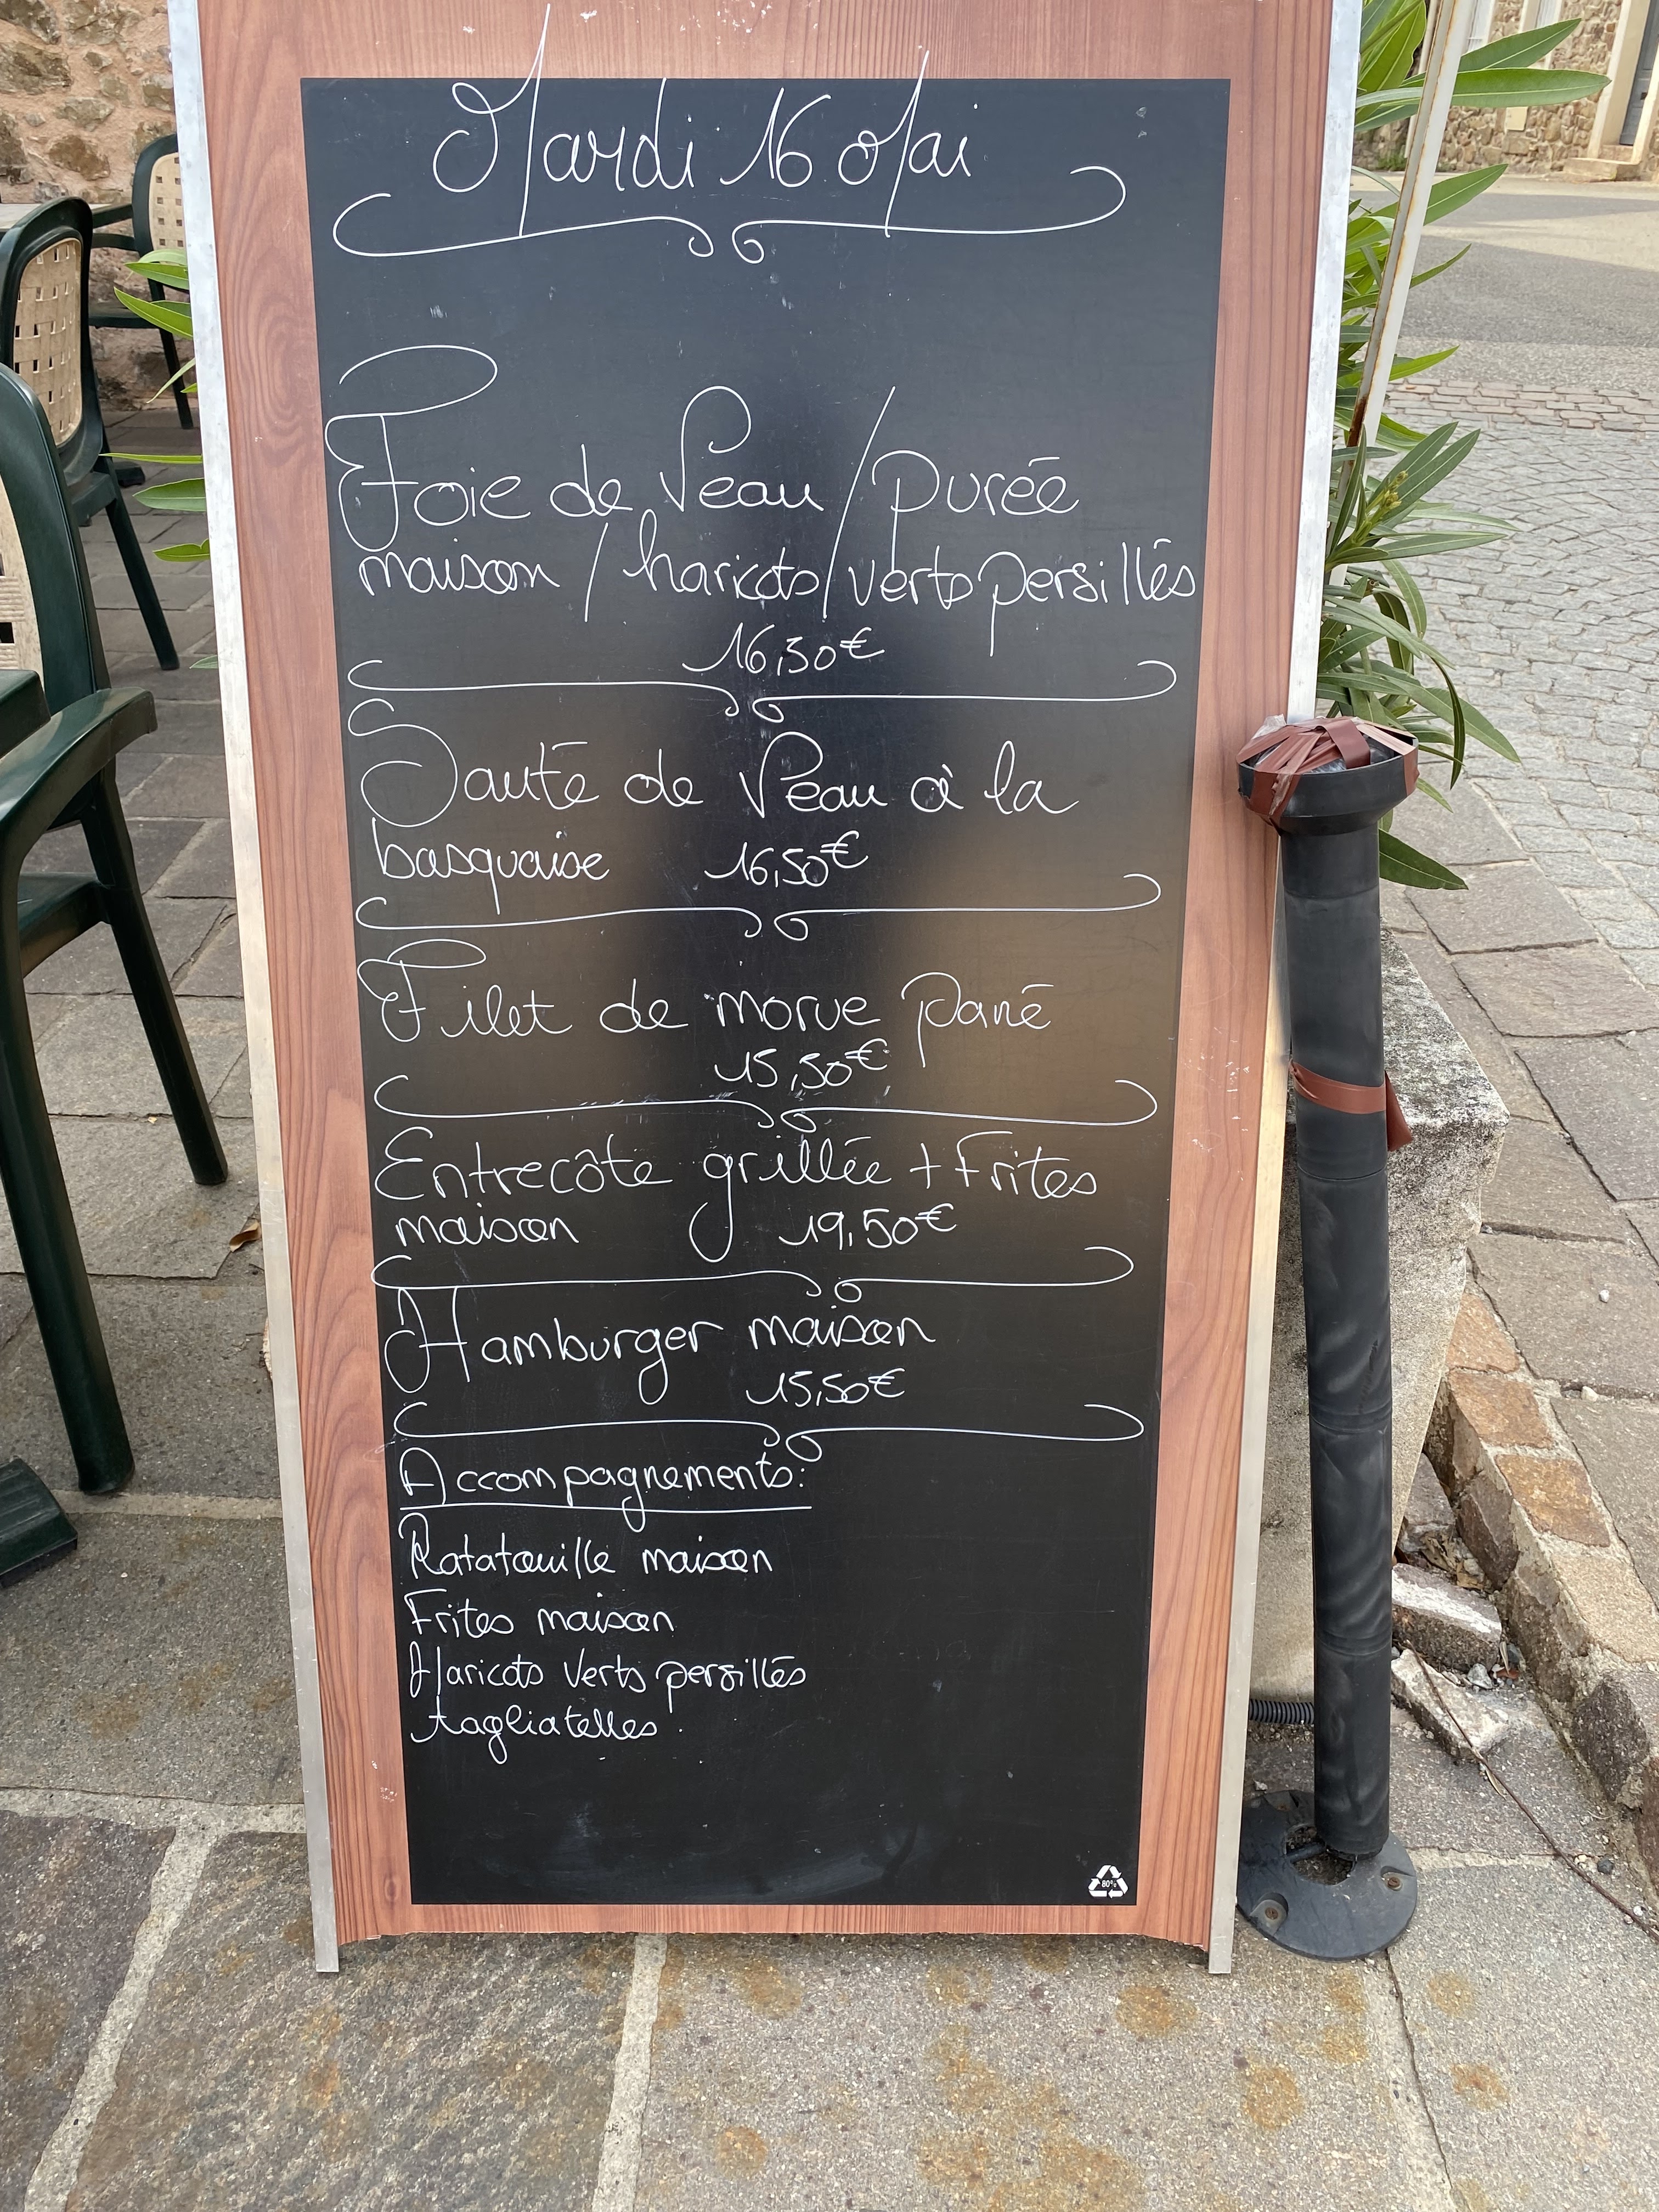 Mardi 16 Mai
Foie de Veau / purée
maison / haricots / verts persillés
16,50€
Sauté de Veau à la
basquaise 16,50€
Filet de morue pané
15,50€
Entrecôte grillée + Frites
maison 19,50€
Hamburger maison
15,50€
Accompagnements:
Ratatouille maison
Frites maison
Haricots Verts persillés
tagliatelles
80%